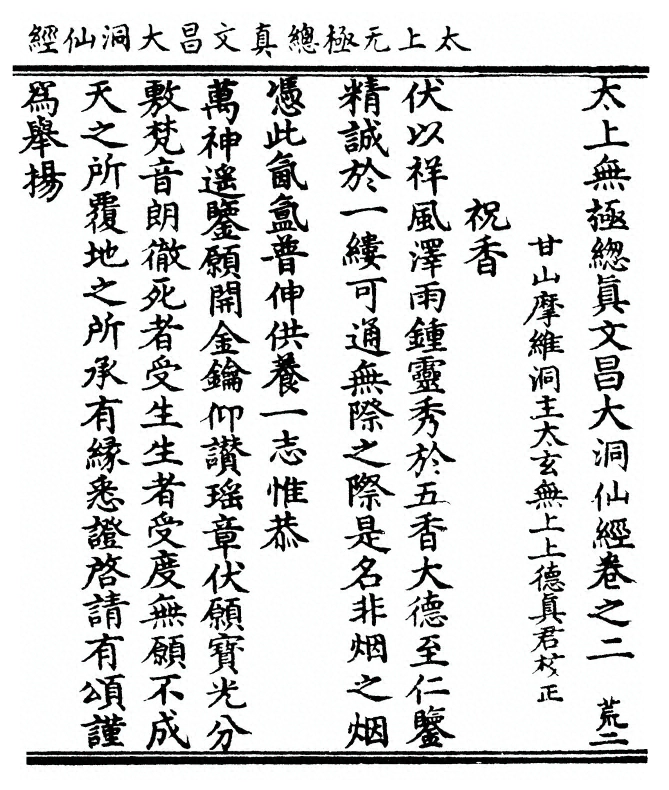 太上无極總真文昌大洞仙經
太上無極緫眞文昌大洞仙經卷之二 荒二
甘山摩維洞主太玄無上上德眞君校正
祝香
伏以祥風澤雨鍾靈秀於五香大德至仁鑒
精誠於一縷可通無際之際是名非烟之烟
憑此氤氳普伸供養一志惟恭
萬神遥鑒願開金鑰仰讃瑶章伏願寳光分
敷梵音朗徹死者受生生者受度無願不成
天之所覆地之所承有緣悉證啓請有頌謹
爲舉揚